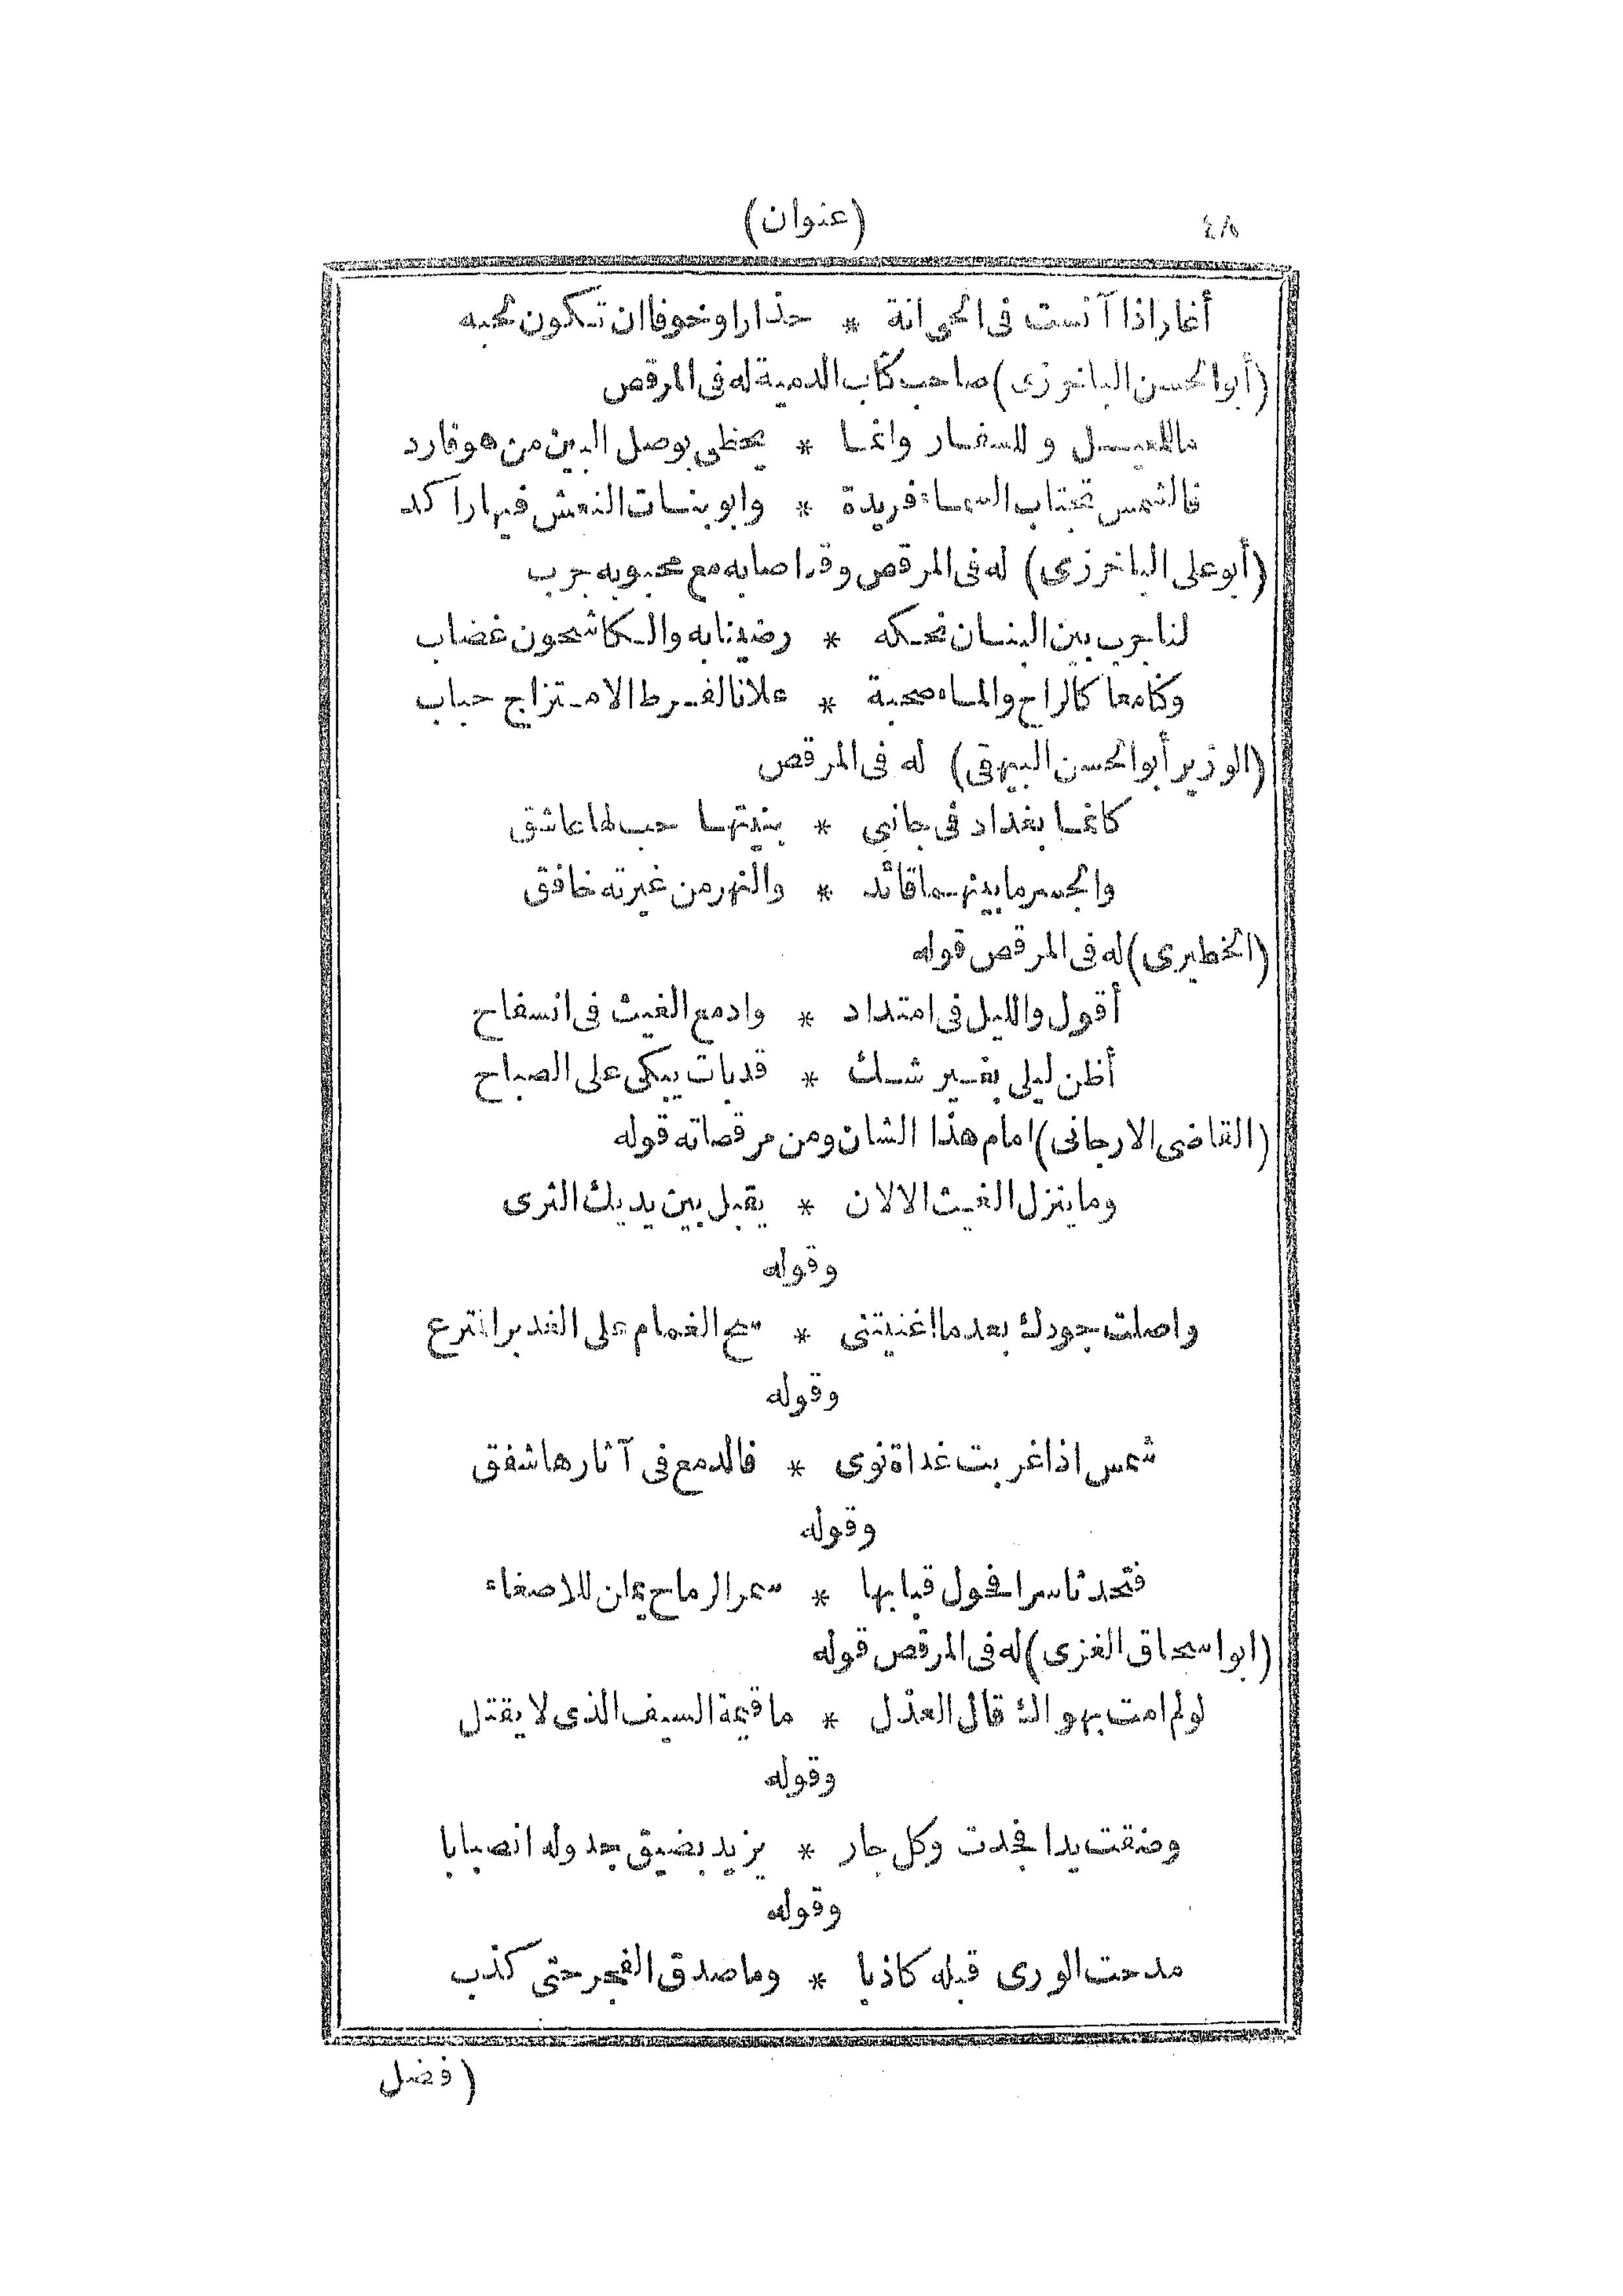 ٤٨
(عنوان)
أغار اذا آنست فى الحى انة * حذارا وخوفا ان تكون لحبه
(أبو الحسن الباخرزى) صاحب كتاب الدمية له فى المرقص
ما للعيـل وللسفار وانما * يحظى بوصل البين من هو فارد
فالشمس تجتاب السماء فريدة * وابو بنات النعش فيها راكد
(أبو على الباخرزى) له فى المرقص وقد اصابه مع محبوبه جرب
لنا جرب بين البنان نحكه * رضينا به والكاشحون غضاب
وكنا معا كالراح والماء صحبة * علانا لفرط الامتزاج حباب
(الوزير أبو الحسن البيهقى) له فى المرقص
كانما بغداد فى جانبى * بنيتها حب لها عاشق
والجسر ما بينهما قائد * والنهر من غيرته خافق
(الخطيرى) له فى المرقص قوله
أقول والليل فى امتداد * وادمع الغيث فى انسفاح
أظن ليلى بغير شك * قد بات يبكى على الصباح
(القاضى الارجانى) امام هذا الشان ومن مرقصاته قوله
وما ينزل الغيث الا لان * يقبل بين يديك الثرى
وقوله
واصلت جودك بعدما اغنيتنى * سح الغمام على الغدير المترع
وقوله
شمس اذا غربت غداة نوى * فالدمع فى آثارها شفق
وقوله
فتحدثا سرا فحول قبابها * سمر الرماح يملن للاصغاء
(ابو اسحاق الغزى) له فى المرقص قوله
لو لم امت بهواك قال العذل * ما قيمة السيف الذى لا يقتل
وقوله
وضقت يدا فجدت وكل جار * يزيد بضيق جدوله انصبابا
وقوله
مدحت الورى قبله كاذبا * وما صدق الفجر حتى كذب
(فضل